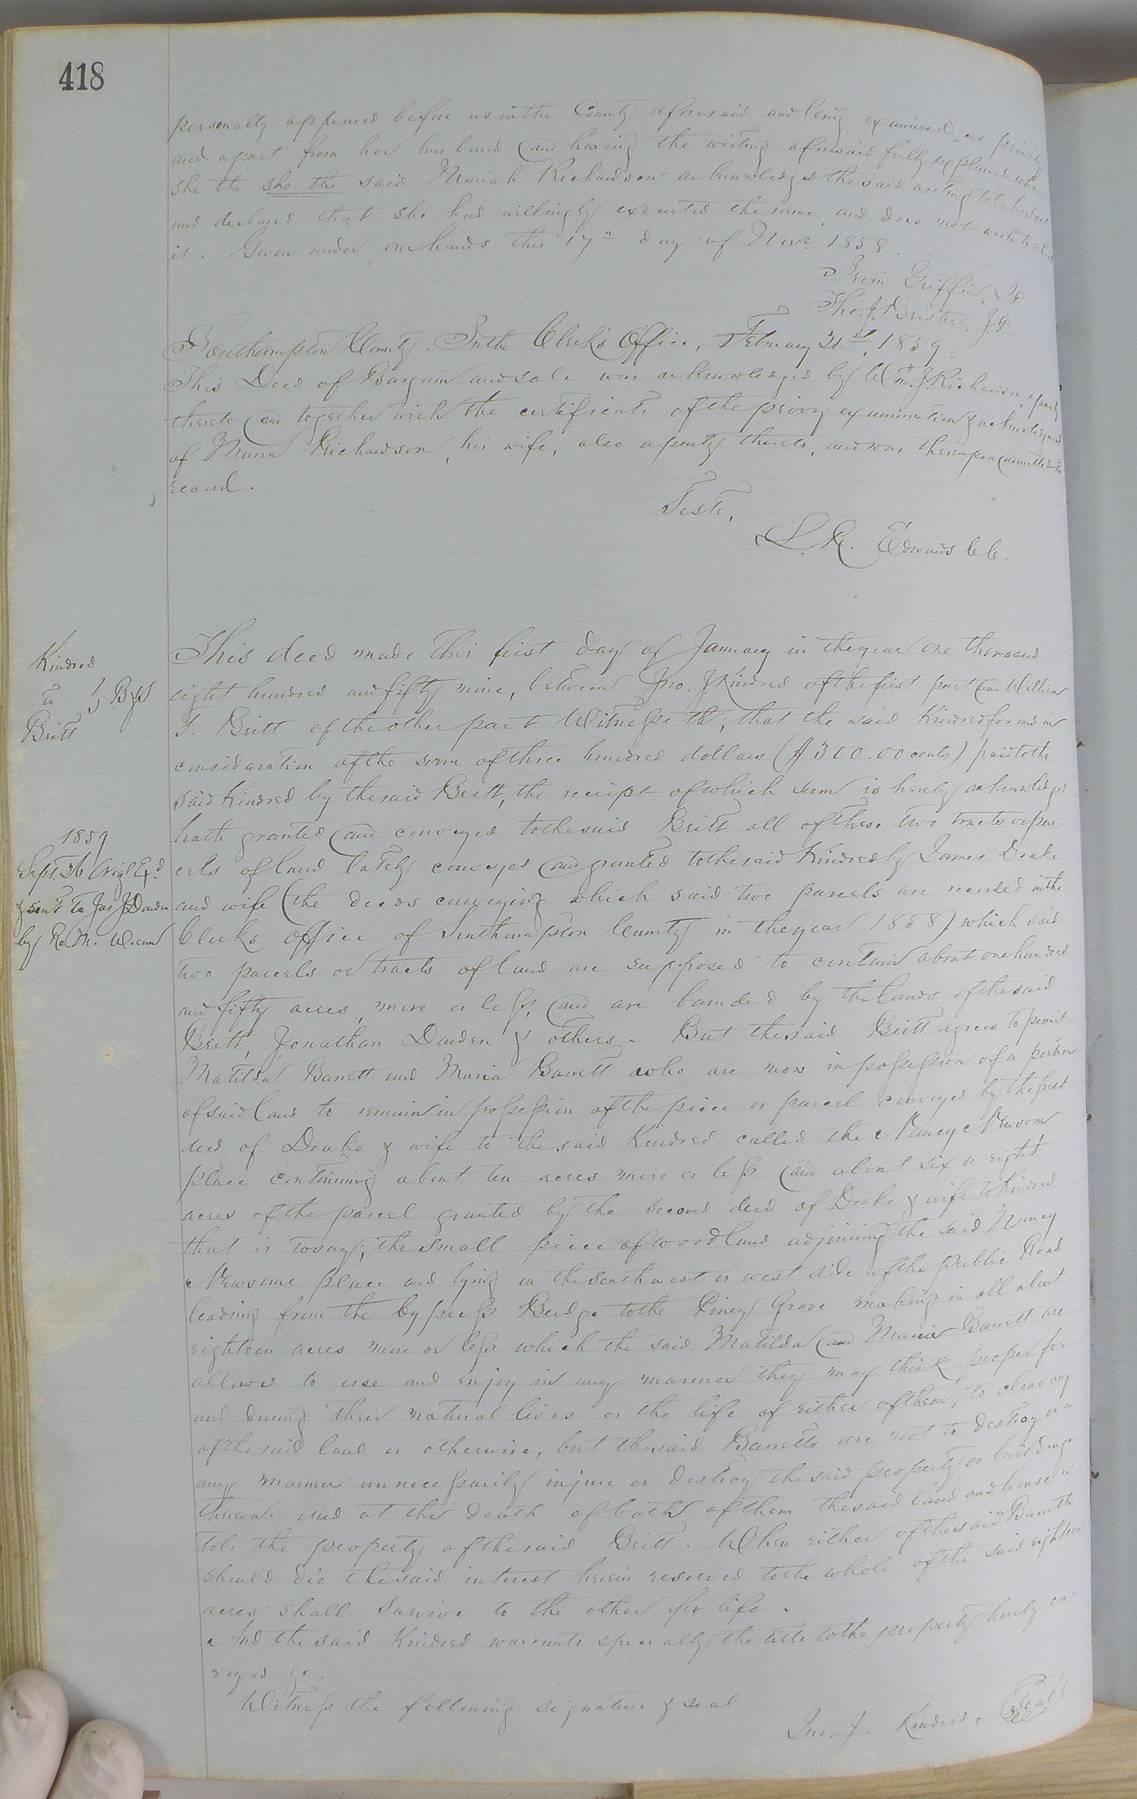 418
personally appeared before us in the County aforesaid and being examined us privily
and apart from her husband and having the writing aforesaid fully explained
she the she the said Mariah Richardson acknowledged the said writing to be her
and declared that she had willingly executed the same, and does not wish to
it. Given under our hands this 17th day of Novr. 1858.
Griffin, J.P.
Tho. J. J.P.
Southampton County. In the Clerk's Office, February 21st, 1859.
This Deed of Bargain and sale was acknowledged by Wm. J. Richardson, a party
thereto and together with the certificate of the privy examination & acknowledgment
of Maria Richardson, his wife, also a party thereto, and was thereupon admitted to
record.
Teste,
L. R. Edwards C.C.
Kindred
to } B&S
Britt
This deed made this first day of January in the year one thousand
eight hundred and fifty nine, between Jno. J. Kindred of the first part and William
T. Britt of the other part Witnesseth; that the said Kindred for and in
consideration of the sum of three hundred dollars ($300.00 cents) paid to the
said Kindred by the said Britt, the receipt of which sum is hereby acknowledged
hath granted and conveyed to the said Britt all of those two tracts or par-
cels of land lately conveyed and granted to the said Kindred by James Drake
and wife (the deeds conveying which said two parcels are recorded in the
Clerks office of Southampton County in the year 1858) which said
two parcels or tracts of land are supposed to contain about one hundred
and fifty acres, more or less, and are bounded by the lands of the said
Britt, Jonathan Darden & others. But the said Britt agrees to permit
Matilda Barrett and Maria Barrett who are now in possession of a portion
of said land to remain in possession of the piece or parcel conveyed by the first
deed of Drake & wife to the said Kindred called the Nancy Newsom
place containing about ten acres more or less and about six or eight
acres of the parcel granted by the second deed of Drake & wife to Kindred
that is to say; the small piece of woodland adjoining the said Nancy
Newsome place and lying on the south west or west side of the Public Road
leading from the Cypress Bridge to the Piney Grove making in all about
eighteen acres more or less which the said Matilda and Maria Barrett are
allowed to use and enjoy in any manner they may think proper for
and during their natural lives or the life of either of them, to clear any
of the said land or otherwise, but the said Barretts are not to destroy or in
any manner unnecessarily injure or destroy the said property or buildings
thereon. and at the death of both of them the said land and houses is
to be the property of the said Britt. When either of the said Barretts
should die the said interest herein reserved to the whole of the said eighteen
acres shall survive to the other for life.
And the said Kindred warrants specially the title to the property hereby con
veyed &c.
Witness the following signature & seal
Jno. J. Kindred, Seal
1859
Sept. 26 Origl Exd.
& sent to Jas. J. Darden
by R. M.